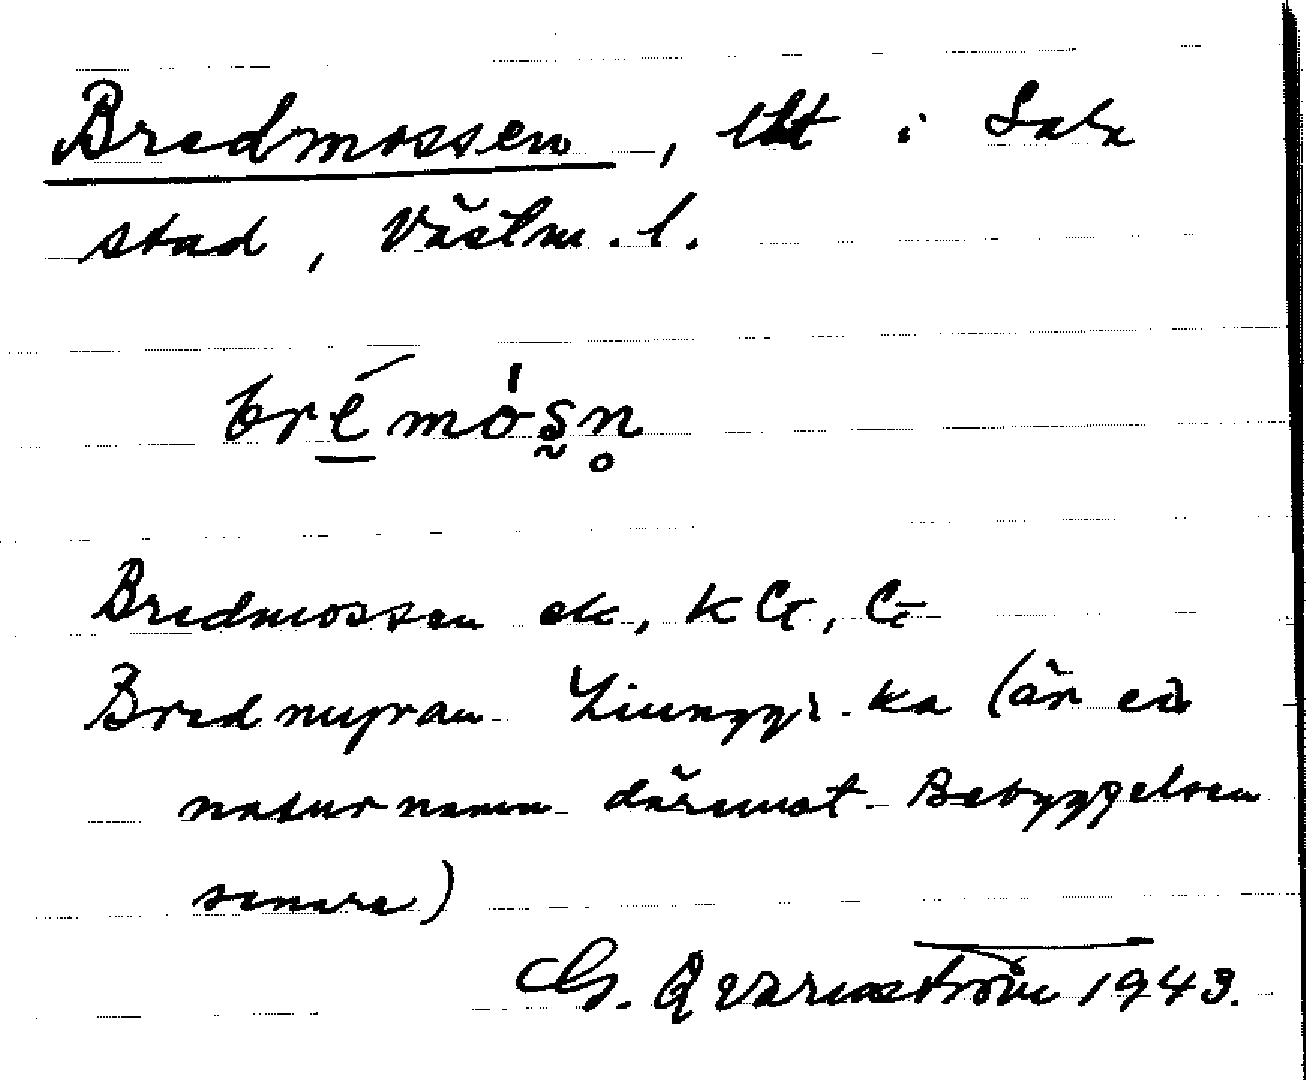 Bredmossen, lht i Sala
stad, Västm. l.
brémósn̥
Bredmossen ek, KG, G
Bredmyran Ljunggr. ka (är ett
naturnamn däremot Bebyggelsen
senare)
G. Qvarnström 1943.